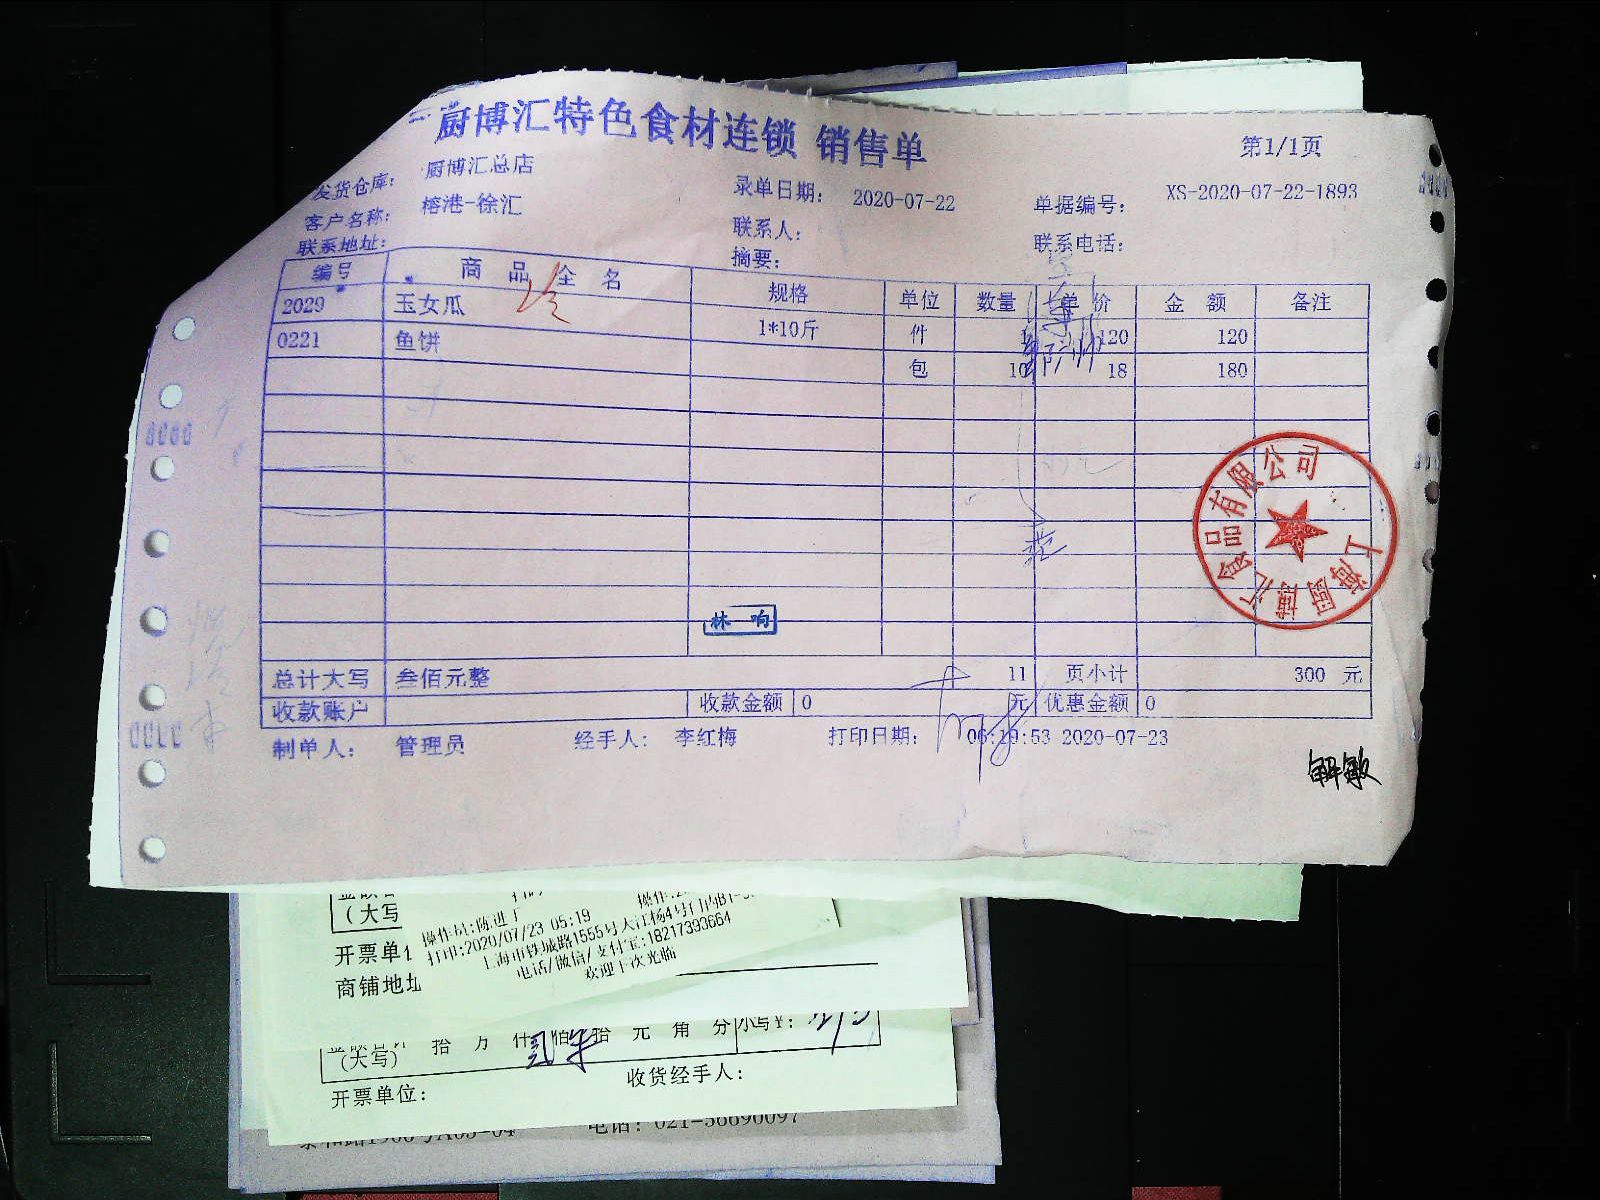 厨博汇特色食材连锁 销售单
第1/1页
发货仓库: 厨博汇总店
录单日期: 2020-07-22
单据编号: XS-2020-07-22-1893
客户名称: 榕港-徐汇
联系人:
联系电话:
联系地址:
摘要:
编号 商品全名 规格 单位 数量 单价 金额 备注
2029 玉女瓜 1*10斤 件 1 120 120
0221 鱼饼 包 10 18 180
上海厨博汇食品有限公司
林响
总计大写 叁佰元整 11 页小计 300 元
收款账户 收款金额 0 元 优惠金额 0
制单人: 管理员 经手人: 李红梅 打印日期: 06:19:53 2020-07-23
解敏
(大写
操作员:陈进
打印:2020/07/23 05:19
开票单位
上海市铁城路1555号大江杨4号门
电话/微信/支付宝:18217393664
商铺地址
欢迎下次光临
(大写) 拾 万 仟 佰 拾 元 角 分 小写¥:
开票单位: 收货经手人:
电话: 021-56690097